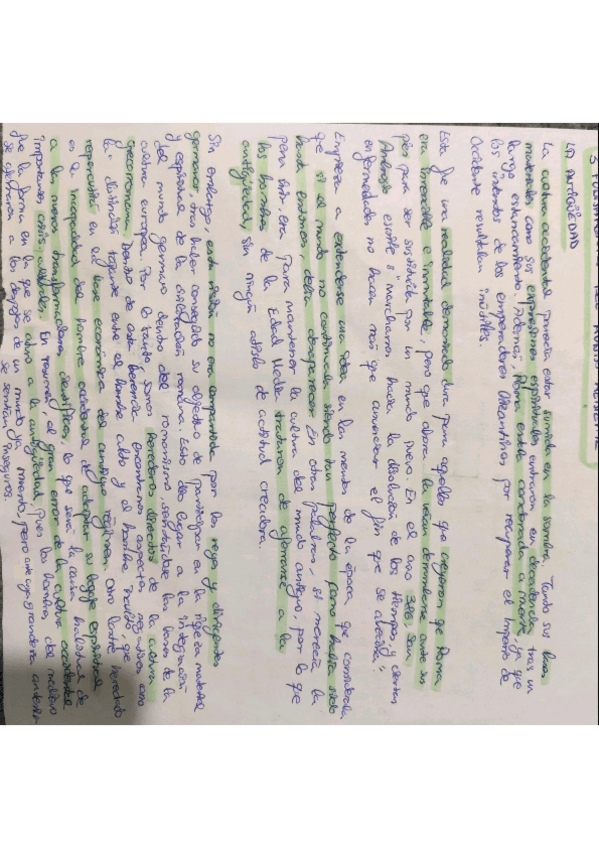 3. FUNDAMENTOS DEL MUNDO MEDIEVAL
LA ANTIGÜEDAD
La cultura occidental parecía estar sumida en la sombra. Tanto sus bases
materiales como sus expresiones espirituales entraron en decadencia, tras un
largo estancamiento. Además, Roma estaba condenada a muerte, ya que
los intentos de los emperadores por recuperar el Imperio de
Occidente resultaban inútiles.
Esta fue una realidad demasiado dura para aquellos que creyeron que Roma
era invencible e inmutable, pero que ahora la veían derrumbarse ante sus
ojos para ser sustituida por un mundo nuevo. En el año 386 San
Ambrosio escribe "marchamos hacia la disolución de los tiempos y ciertas
enfermedades no hacen más que anunciar el fin que se acerca".
Empieza a extenderse una idea en las mentes de la época que consideraba
que si el mundo no continuaba siendo tan perfecto como había sido
hasta entonces, debía desaparecer. En otras palabras, si merecía la
pena vivir era para mantener la cultura del mundo antiguo, por lo que
los hombres de la Edad Media trataron de aferrarse a la
antigüedad, sin ningún atisbo de actitud creadora.
Sin embargo, esta visión no era compartida por los reyes y dirigentes
germanos, tras haber conseguido su objetivo de participar en la riqueza material
y espiritual de la civilización romana. Esto dio lugar a la integración
del mundo germano dentro del romanismo, sentándose las bases de la
cultura europea. Por lo tanto, somos herederos directos de la cultura
grecorromana. Dentro de esta herencia encontramos aspectos negativos como
la distinción tajante entre el hombre culto y el hombre inculto, que
repercutía en el base económica del antiguo régimen. Otro lastre heredado
es la incapacidad del hombre occidental de adaptar su bagaje espiritual
a las nuevas transformaciones científicas, lo que será la causa habitual de
importantes crisis culturales. En resumen, el gran error de la cultura occidental
fue la forma en la que se abrió a la antigüedad, pues los hombres del medievo
se aferraron a los despojos de un mundo ya muerto, pero ante cuya grandeza anterior
se sentían inseguros.